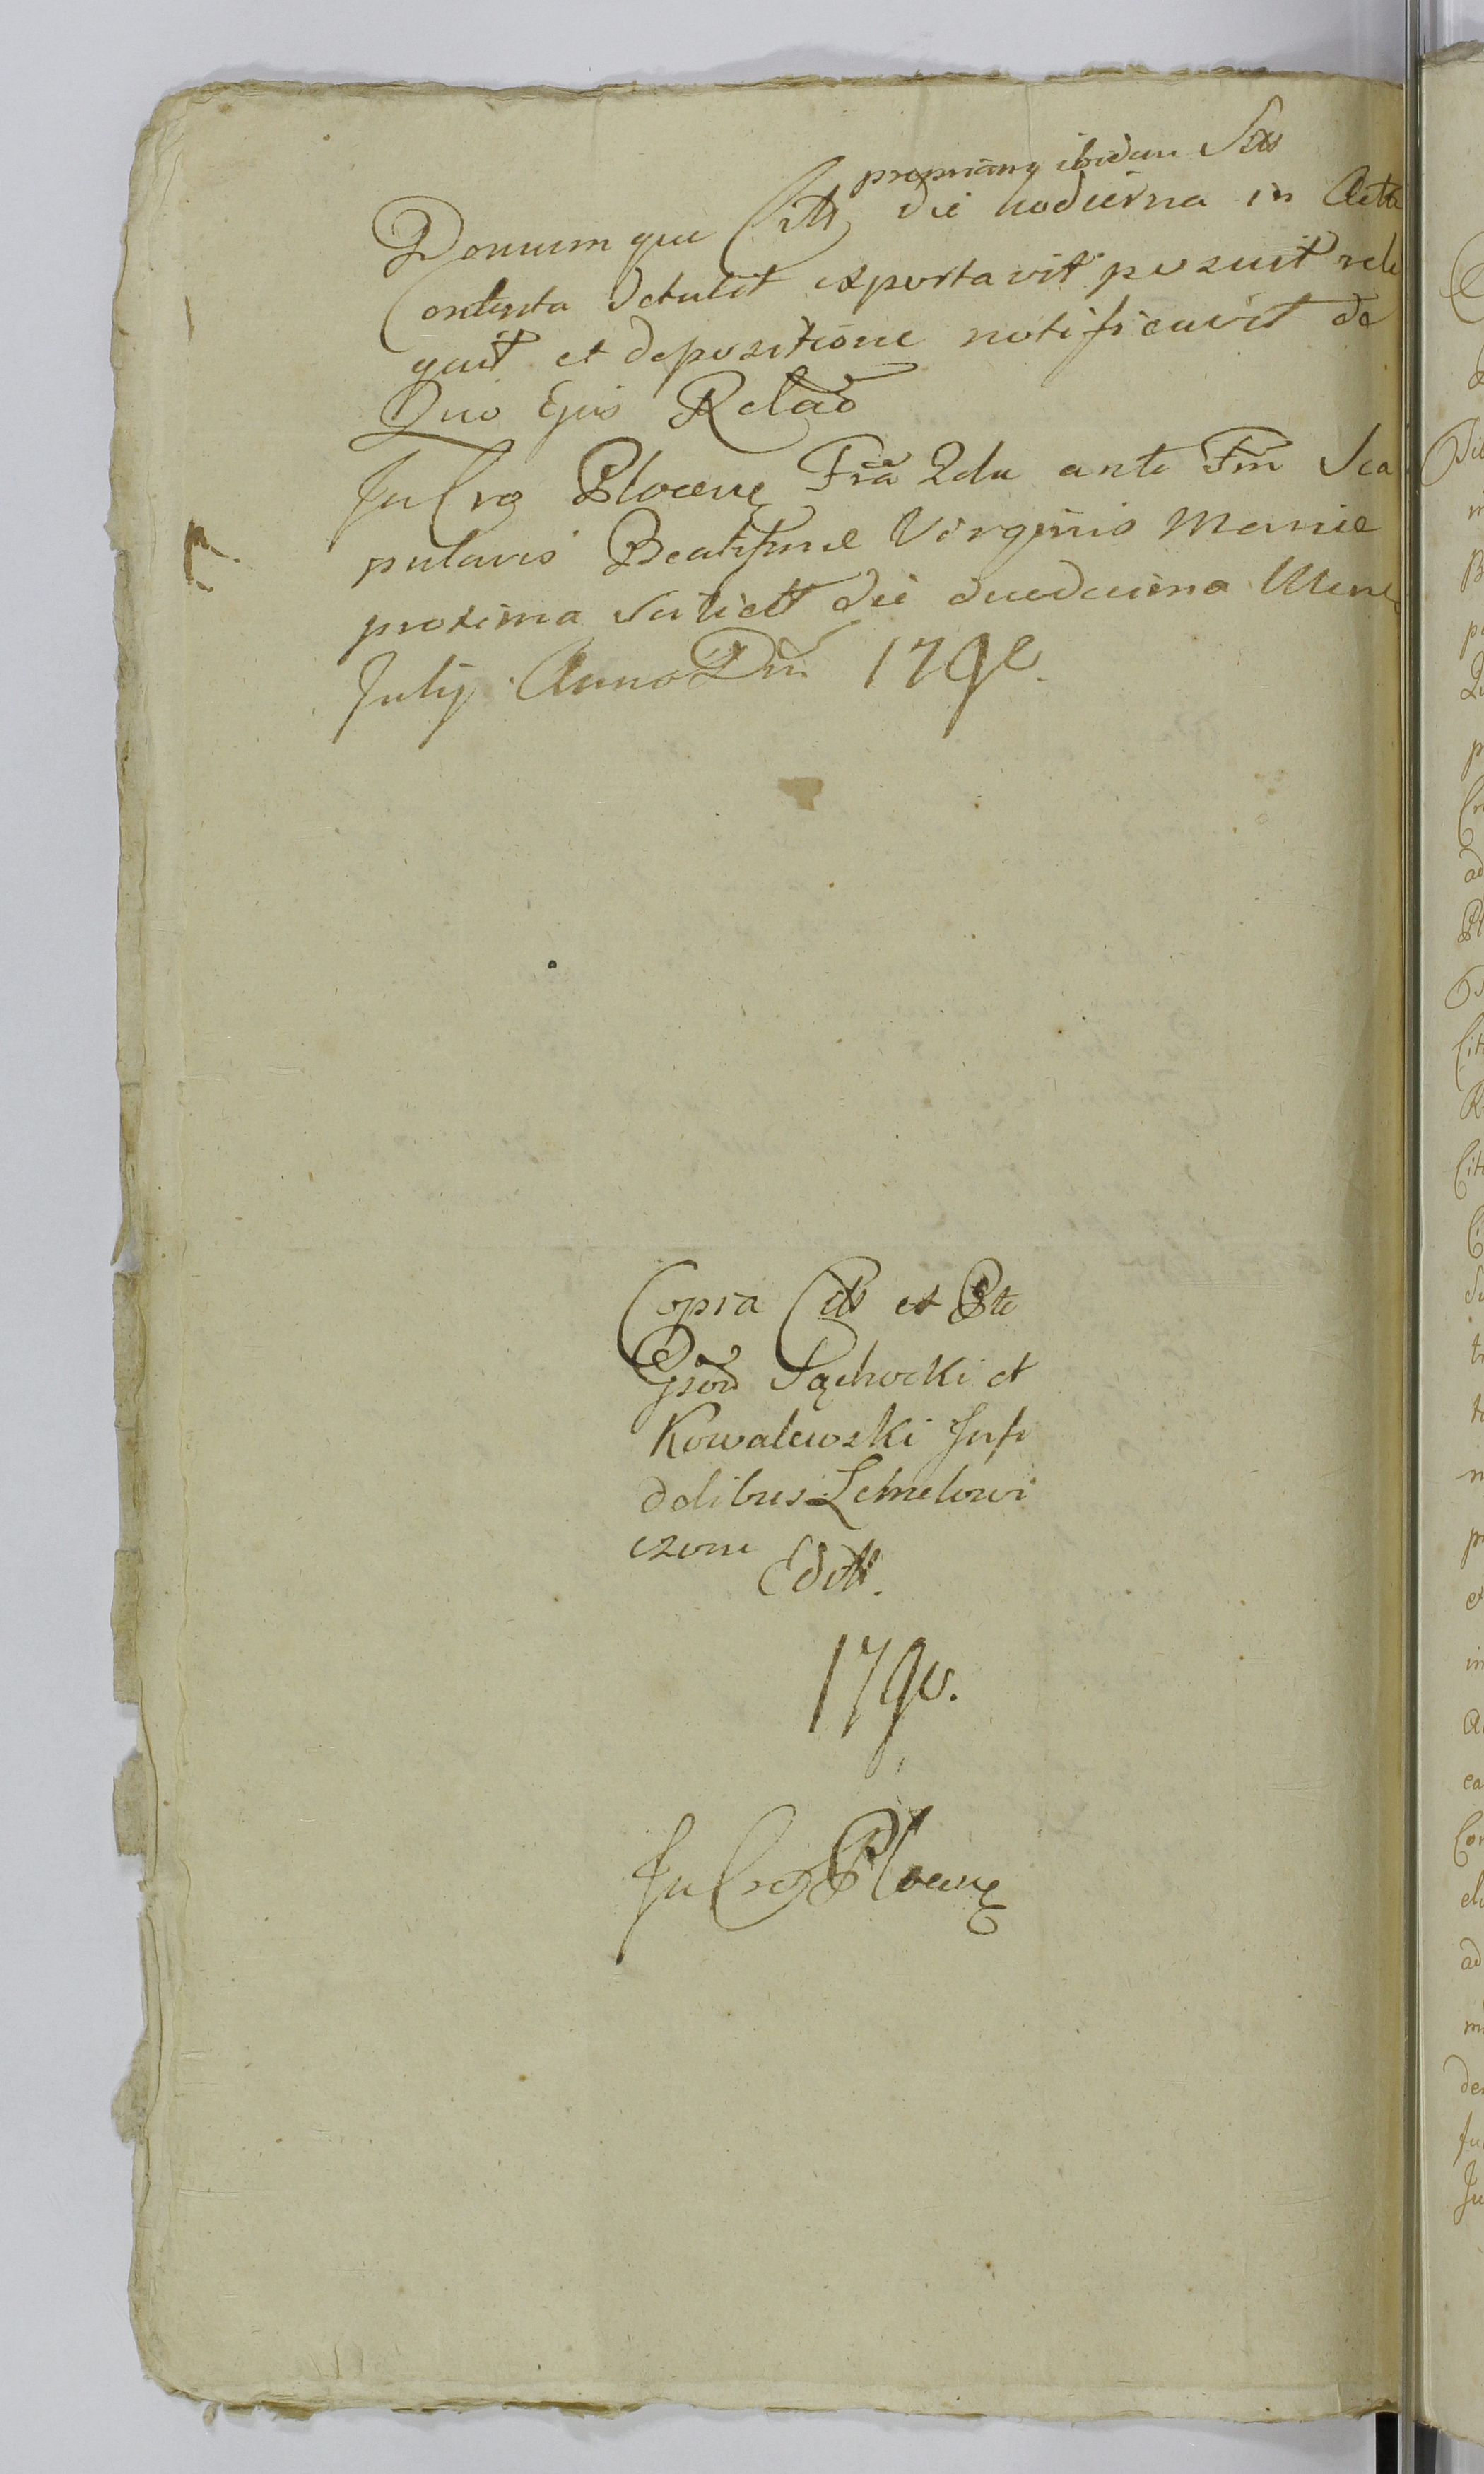 propriamq ibidem Sitts
Domumque Citti die hodierna in Actu
Contenta detulit exportavit posuit reli
quit et depositione notificavit de
Quo Ejus Relaõ
In Cro Plocen Fria 2da ante Fm Sca
pularis Beatissime Virginis Marie
proxima scilicett die duodecima Mens
July Anno Dni 1790.
Copia Citt et
Gsõd Sąchocki et
Kowalewski Infi
delibus Lemelowi
czom
Editt.
1790.
In Cro Plocen